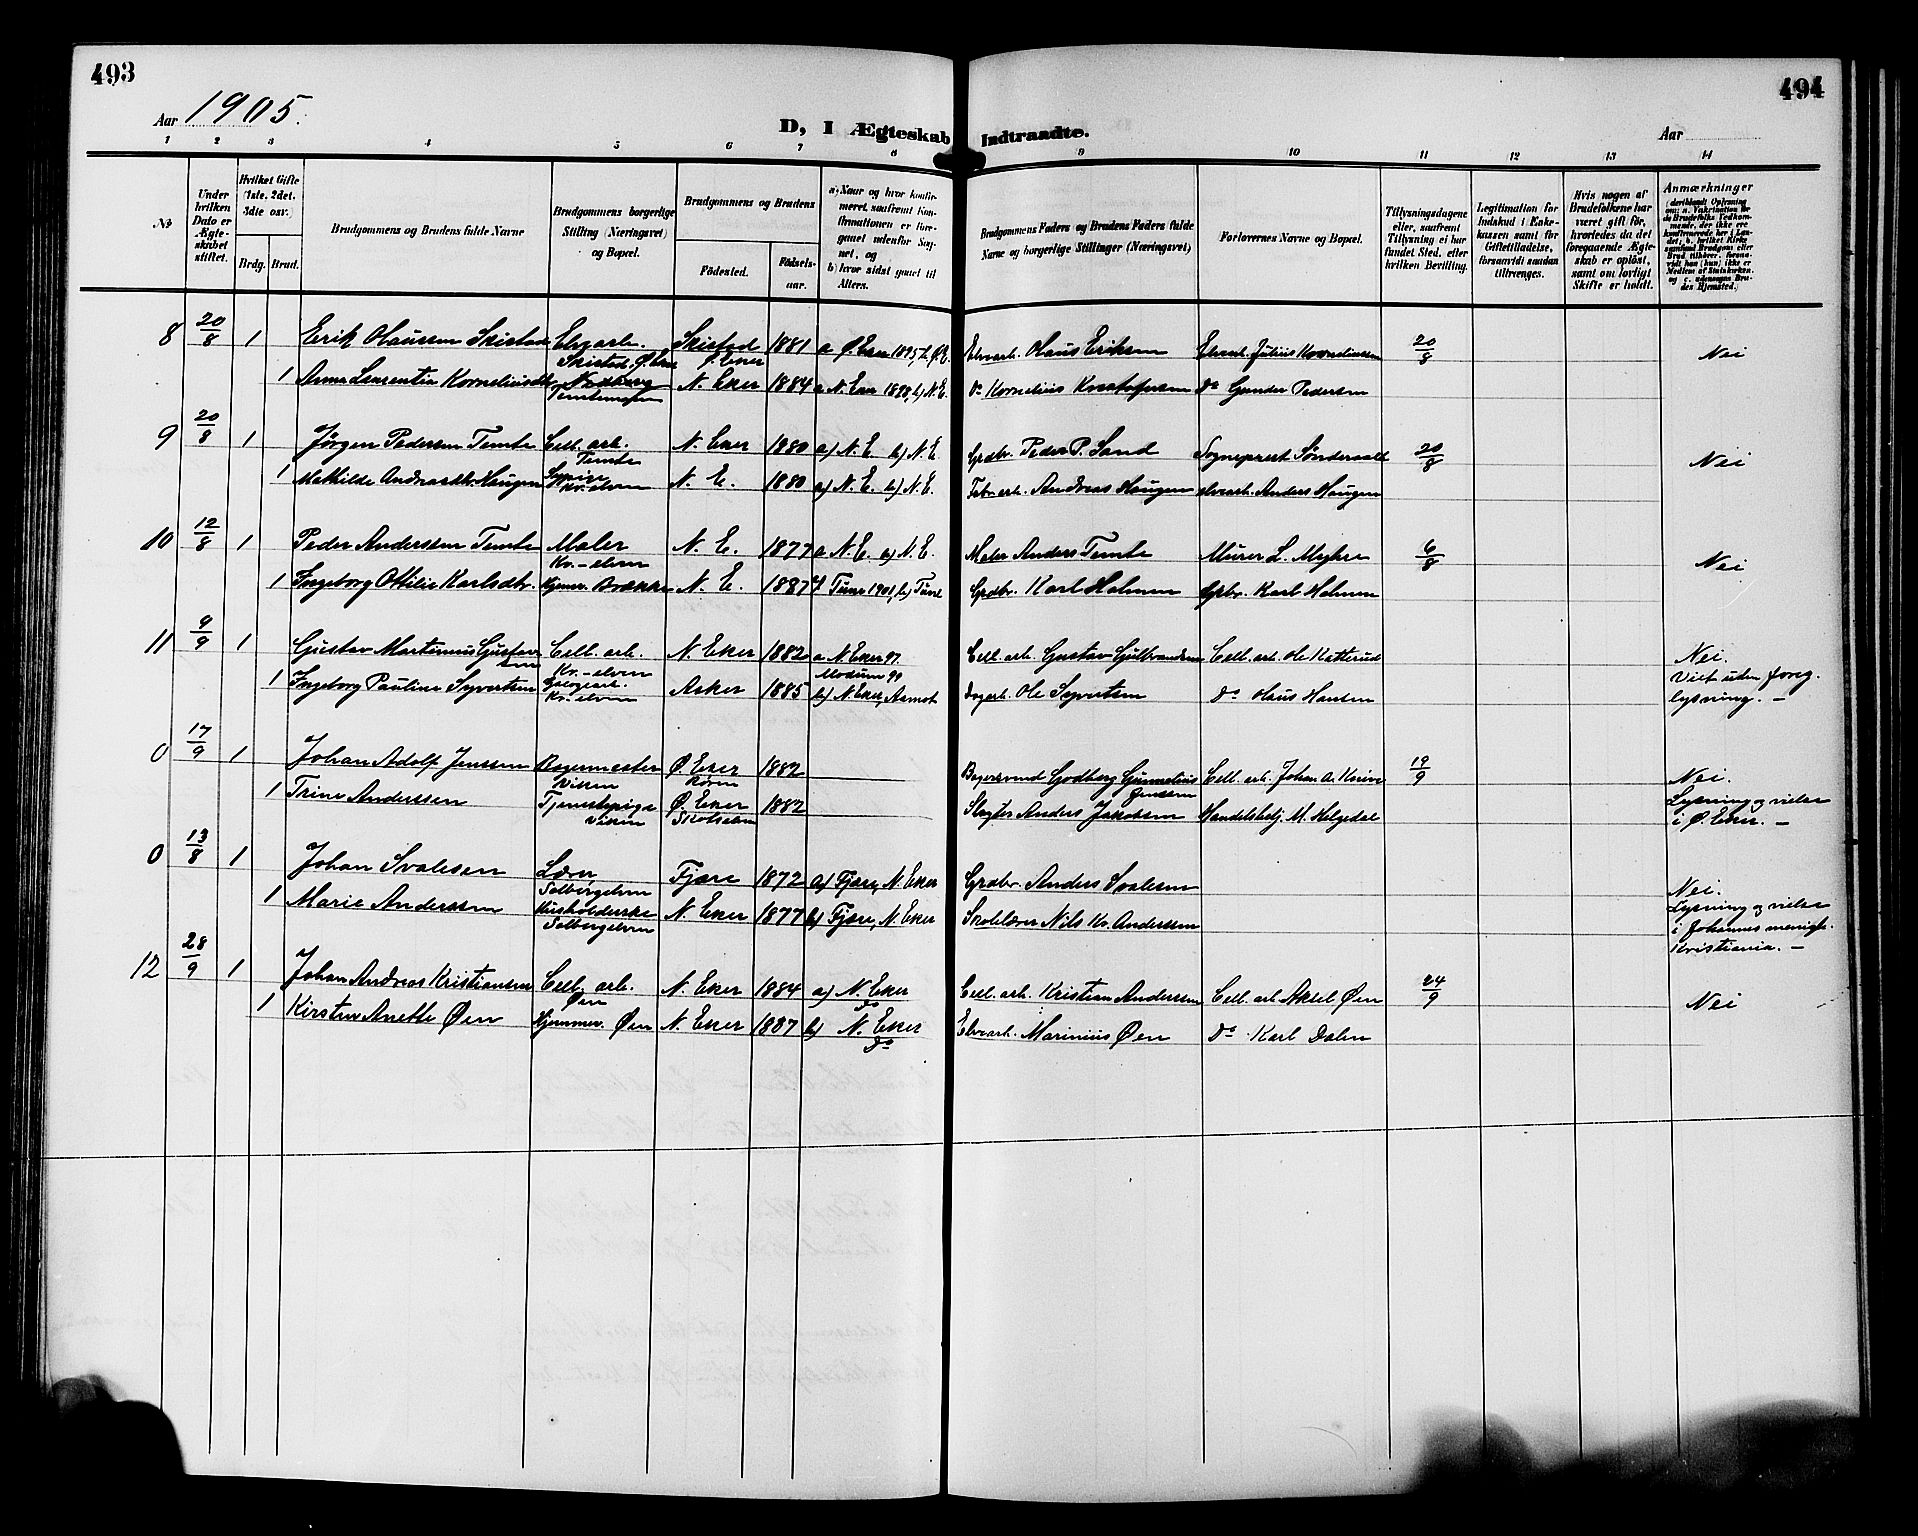 493
494
Aar 1905.
D, I Ægteskab Indtraadte.
Aar
1 2 3 4 5 6 7 8 9 10 11 12 13 14
No
Under hvilken Dato er Ægteskabet stiftet.
Hvilket Gifte (1ste, 2det, 3die osv.)
Brdg. Brud.
Brudgommens og Brudens fulde Navne
Brudgommens borgerlige Stilling (Næringsvei) og Bopæl.
Brudgommens og Brudens
Fødested.
Fødselsaar.
a) Naar og hvor konfirmeret, saafremt Konfirmationen er foregaaet udenfor Sognet, og
b) hvor sidst gaaet til Alters.
Brudgommens Faders og Brudens Faders fulde Navne og borgerlige Stillinger (Næringsvei)
Forlovernes Navne og Bopæl.
Tillysningsdagene eller, saafremt Tillysning ei har fundet Sted, efter hvilken Bevilling.
Legitimation for Indskud i Enkekassen samt for Giftetilladelse, forsaavidt saadan tiltrænges.
Hvis nogen af Brudefolkene har været gift før, hvorledes da det foregaaende Ægteskab er opløst, samt om lovligt Skifte er holdt.
Anmærkninger
8 20/8 1 Erik Olaussen Skistad Elvearb. Skistad 1881 a Ø. Eker 1895 b. Ø. E. Elvearb. Olaus Eriksen Elvearb. Julius Korneliussen 20/8 Nei
Skistad Ø. Eker Ø. Eker
1 Anna Laurentia Korneliusdtr. N. Eker 1884 a N. Eker b) N. E. Do Kornelius Kristofersen Do Gunder Pedersen
9 20/8 1 Jørgen Pedersen Temte Cell. arb. N. Eker 1880 a) N. E. b) N. E. Grdbr. Peder P. Sand Sogneprest 20/8 Nei
Temte
1 Mathilde Andreasdtr. Haugen N. E. 1880 a) N. E. b) N. E. Andreas Haugen elvearb. Anders Haugen
Kr.-elven
10 12/8 1 Peder Anderssen Temte Maler N. E. 1877 a N. E. b) N. E. Maler Anders Temte Murer L. Myhre 6/8 Nei
Kr.-elven
1 Ingeborg Ottilie Karlsdtr. Hjemmev. Brække N. E. Tune 1901, b) Tune Grdbr. Karl Holmen Grbr. Karl Holmen
11 9/9 1 Gustav Martinius Gustavsen Cell. arb. N. Eker 1882 a N. Eker 97. Cell. arb. Gustav Gulbrandsen Cell. arb. Ole Katterud Nei.
Kr.-elven Modum 99 Viet uden foreg.
1 Ingeborg Pauline Syvertsen Asker 1885 b) N. Eker, Aamot Dagarb. Ole Syvertsen Do Olaus Hansen lysning. –
Kr.-elven
0 17/9 1 Johan Adolf Jenssen Bagermester Ø. Eker 1882 Bagersvend Godberg Gunnelius Jenssen Cell. arb. Johan A. 19/9 Nei.
Viken
1 Trine Anderssen Tjenestepige Ø. Eker 1882 Slagter Anders Jakobsen Handelsbetj. M. Helgedal Lysning og vielse
Viken Skotselven i Ø. Eker. –
0 13/8 1 Johan Svalesen Lærer Fjære 1872 a) Fjære, N. Eker Grdbr. Anders Svalesen Nei.
Solbergelven Lysning og vielse
1 Marie Anderssen Husholderske N. Eker 1877 b) Fjære, N. Eker Skolelærer Nils Kr. Anderssen i Johannes menigh.
Solbergelven Kristiania. –
12 28/9 1 Johan Andreas Kristiansen Cell. arb. N. Eker 1884 a) N. Eker Cell. arb. Kristian Anderssen Cell. arb. Aksel Øen 24/9 Nei
Øen do
1 Kirstine Anette Øen Hjemmev. Øen N. Eker 1887 b) N. Eker Elvearb. Marinius Øen Do Karl Dalen
do